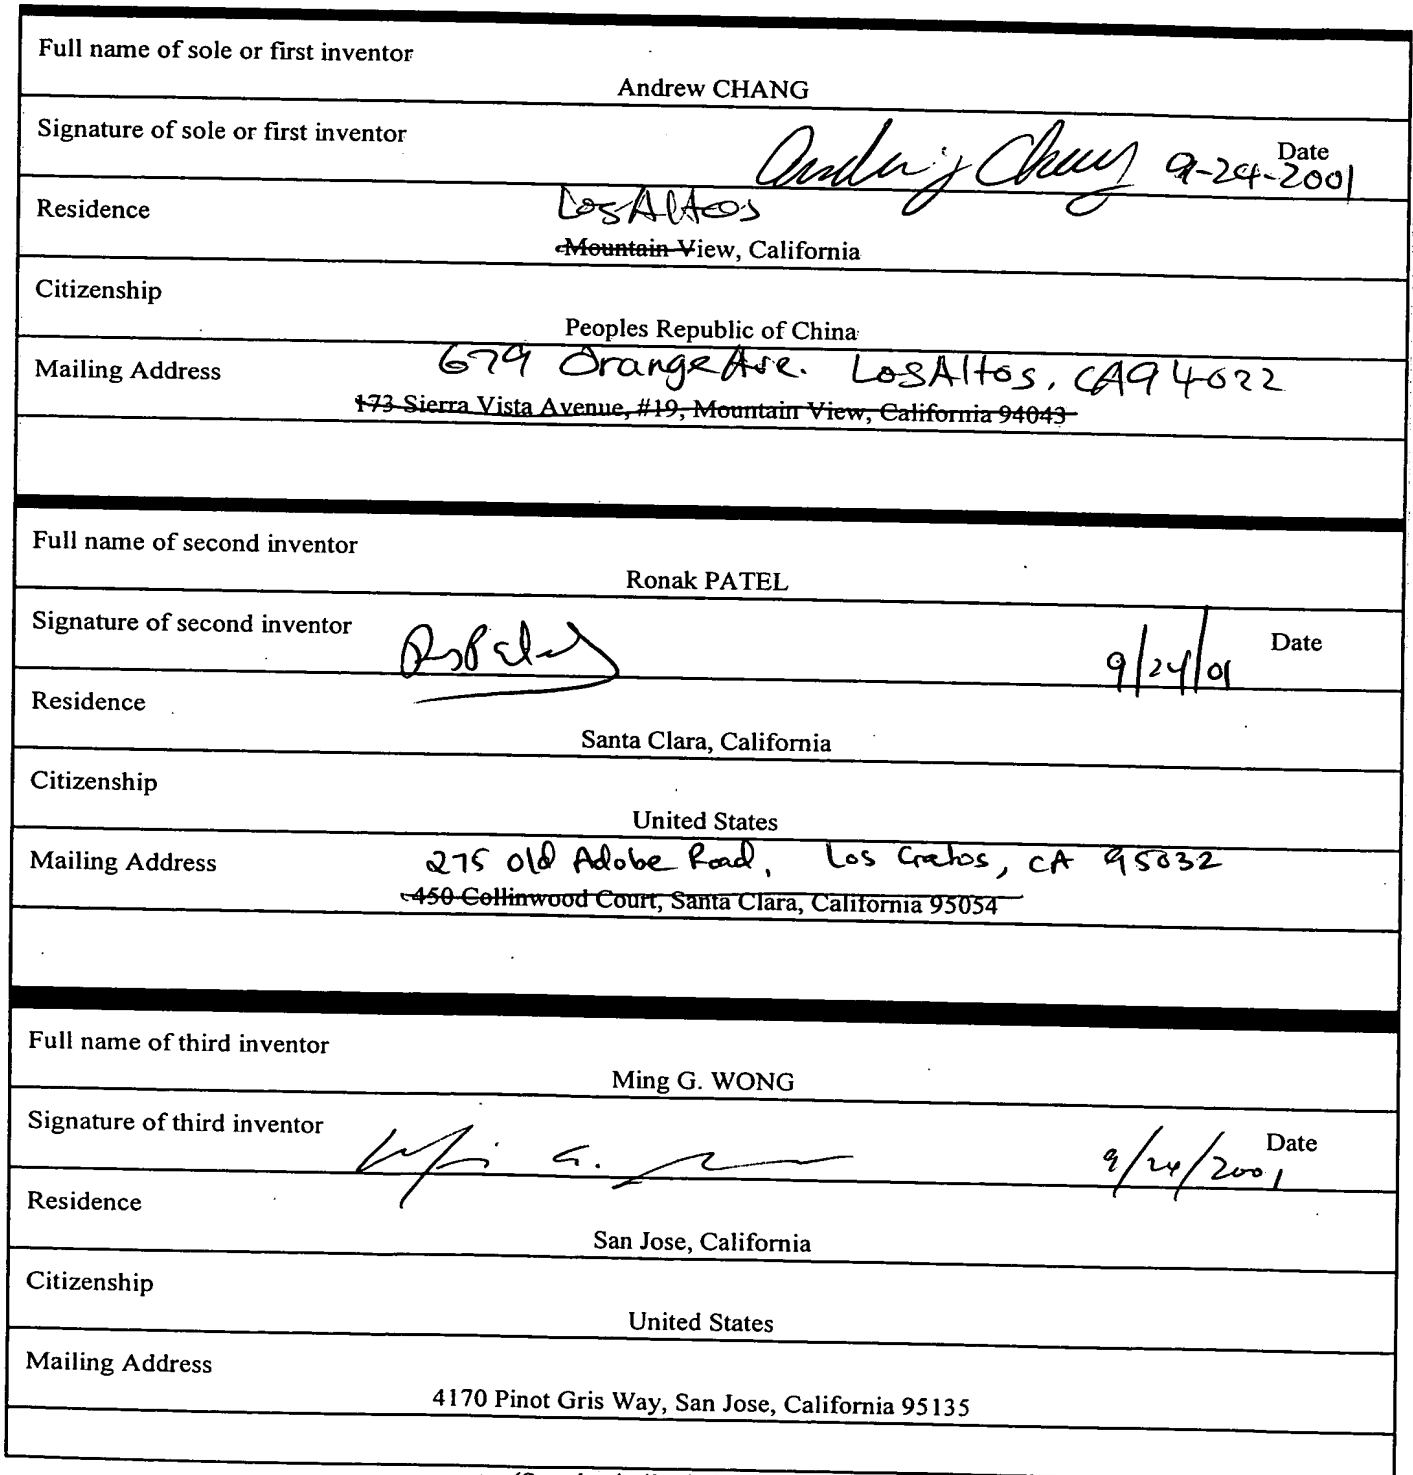 Full name of sole or first inventor
Andrew CHANG
Signature of sole or first inventor
Date
9-24-2001
Residence
Los Altos
Mountain View, California
Citizenship
Peoples Republic of China
Mailing Address
679 Orange Ave. Los Altos, CA 94022
173 Sierra Vista Avenue, #19, Mountain View, California 94043
Full name of second inventor
Ronak PATEL
Signature of second inventor
9/24/01 Date
Residence
Santa Clara, California
Citizenship
United States
Mailing Address
275 Old Adobe Road, Los Gatos, CA 95032
450 Collinwood Court, Santa Clara, California 95054
Full name of third inventor
Ming G. WONG
Signature of third inventor
9/24/2001 Date
Residence
San Jose, California
Citizenship
United States
Mailing Address
4170 Pinot Gris Way, San Jose, California 95135